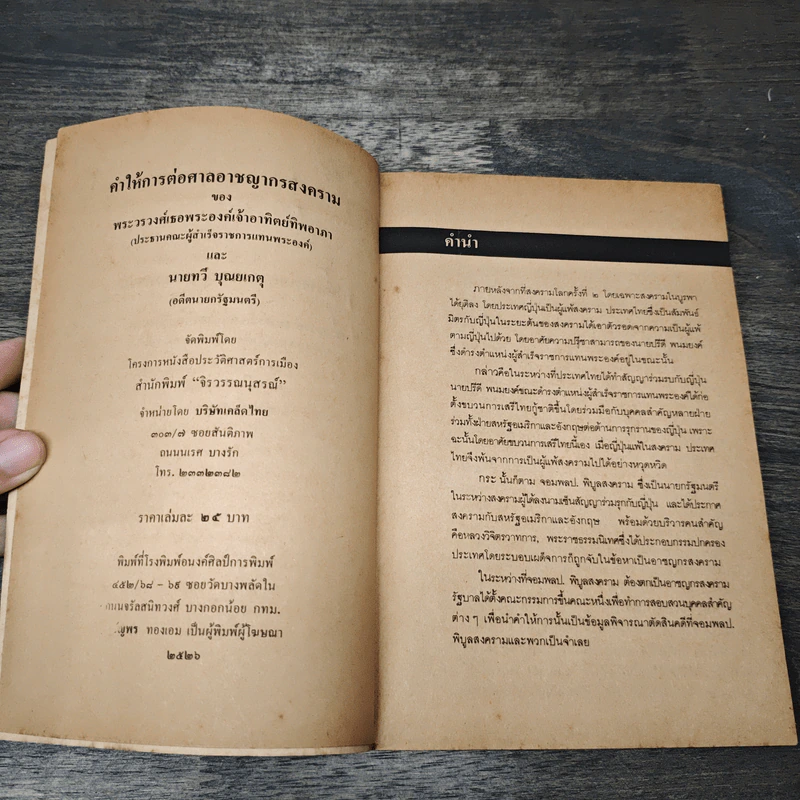 คำให้การต่อศาลอาชญากรสงคราม
ของ
พระวรวงศ์เธอพระองค์เจ้าอาทิตย์ทิพอาภา
(ประธานคณะผู้สำเร็จราชการแทนพระองค์)
และ
นายทวี บุณยเกตุ
(อดีตนายกรัฐมนตรี)
จัดพิมพ์โดย
โครงการหนังสือประวัติศาสตร์การเมือง
สำนักพิมพ์ “จิรวรรณนุสรณ์”
จำหน่ายโดย บริษัทเคล็ดไทย
๓๐๓/๗ ซอยสันติภาพ
ถนนนเรศ บางรัก
โทร. ๒๓๓๒๓๘๒
ราคาเล่มละ ๒๕ บาท
พิมพ์ที่โรงพิมพ์อนงค์ศิลป์การพิมพ์
๔๕๒/๖๘ – ๖๙ ซอยวัดบางพลัดใน
ถนนจรัลสนิทวงศ์ บางกอกน้อย กทม.
ทองเอม เป็นผู้พิมพ์ผู้โฆษณา
๒๕๒๖
คำนำ
ภายหลังจากที่สงครามโลกครั้งที่ ๒ โดยเฉพาะสงครามในบูรพา
ได้ยุติลง โดยประเทศญี่ปุ่นเป็นผู้แพ้สงคราม ประเทศไทยซึ่งเป็นสัมพันธ์
มิตรกับญี่ปุ่นในระยะต้นของสงครามได้เอาตัวรอดจากความเป็นผู้แพ้
ตามญี่ปุ่นไปด้วย โดยอาศัยความปรีชาสามารถของนายปรีดี พนมยงค์
ซึ่งดำรงตำแหน่งผู้สำเร็จราชการแทนพระองค์อยู่ในขณะนั้น
กล่าวคือในระหว่างที่ประเทศไทยได้ทำสัญญาร่วมรบกับญี่ปุ่น
นายปรีดี พนมยงค์ขณะดำรงตำแหน่งผู้สำเร็จราชการแทนพระองค์ได้ก่อ
ตั้งขบวนการเสรีไทยกู้ชาติขึ้นโดยร่วมมือกับบุคคลสำคัญหลายฝ่าย
ร่วมทั้งฝ่ายสหรัฐอเมริกาและอังกฤษต่อต้านการรุกรานของญี่ปุ่น เพราะ
ฉะนั้นโดยอาศัยขบวนการเสรีไทยนี้เอง เมื่อญี่ปุ่นแพ้ในสงคราม ประเทศ
ไทยจึงพ้นจากการเป็นผู้แพ้สงครามไปได้อย่างหวุดหวิด
กระ นั้นก็ตาม จอมพลป. พิบูลสงคราม ซึ่งเป็นนายกรัฐมนตรี
ในระหว่างสงครามผู้ได้ลงนามเซ็นสัญญาร่วมรุกกับญี่ปุ่น และได้ประกาศ
สงครามกับสหรัฐอเมริกาและอังกฤษ พร้อมด้วยบริวารคนสำคัญ
คือหลวงวิจิตรวาทการ, พระราชธรรมนิเทศซึ่งได้ประกอบกรรมปกครอง
ประเทศโดยระบอบเผด็จการก็ถูกจับในข้อหาเป็นอาชญกรสงคราม
ในระหว่างที่จอมพลป. พิบูลสงคราม ต้องตกเป็นอาชญกรสงคราม
รัฐบาลได้ตั้งคณะกรรมการขึ้นคณะหนึ่งเพื่อทำการสอบสวนบุคคลสำคัญ
ต่าง ๆ เพื่อนำคำให้การนั้นเป็นข้อมูลพิจารณาตัดสินคดีที่จอมพลป.
พิบูลสงครามและพวกเป็นจำเลย